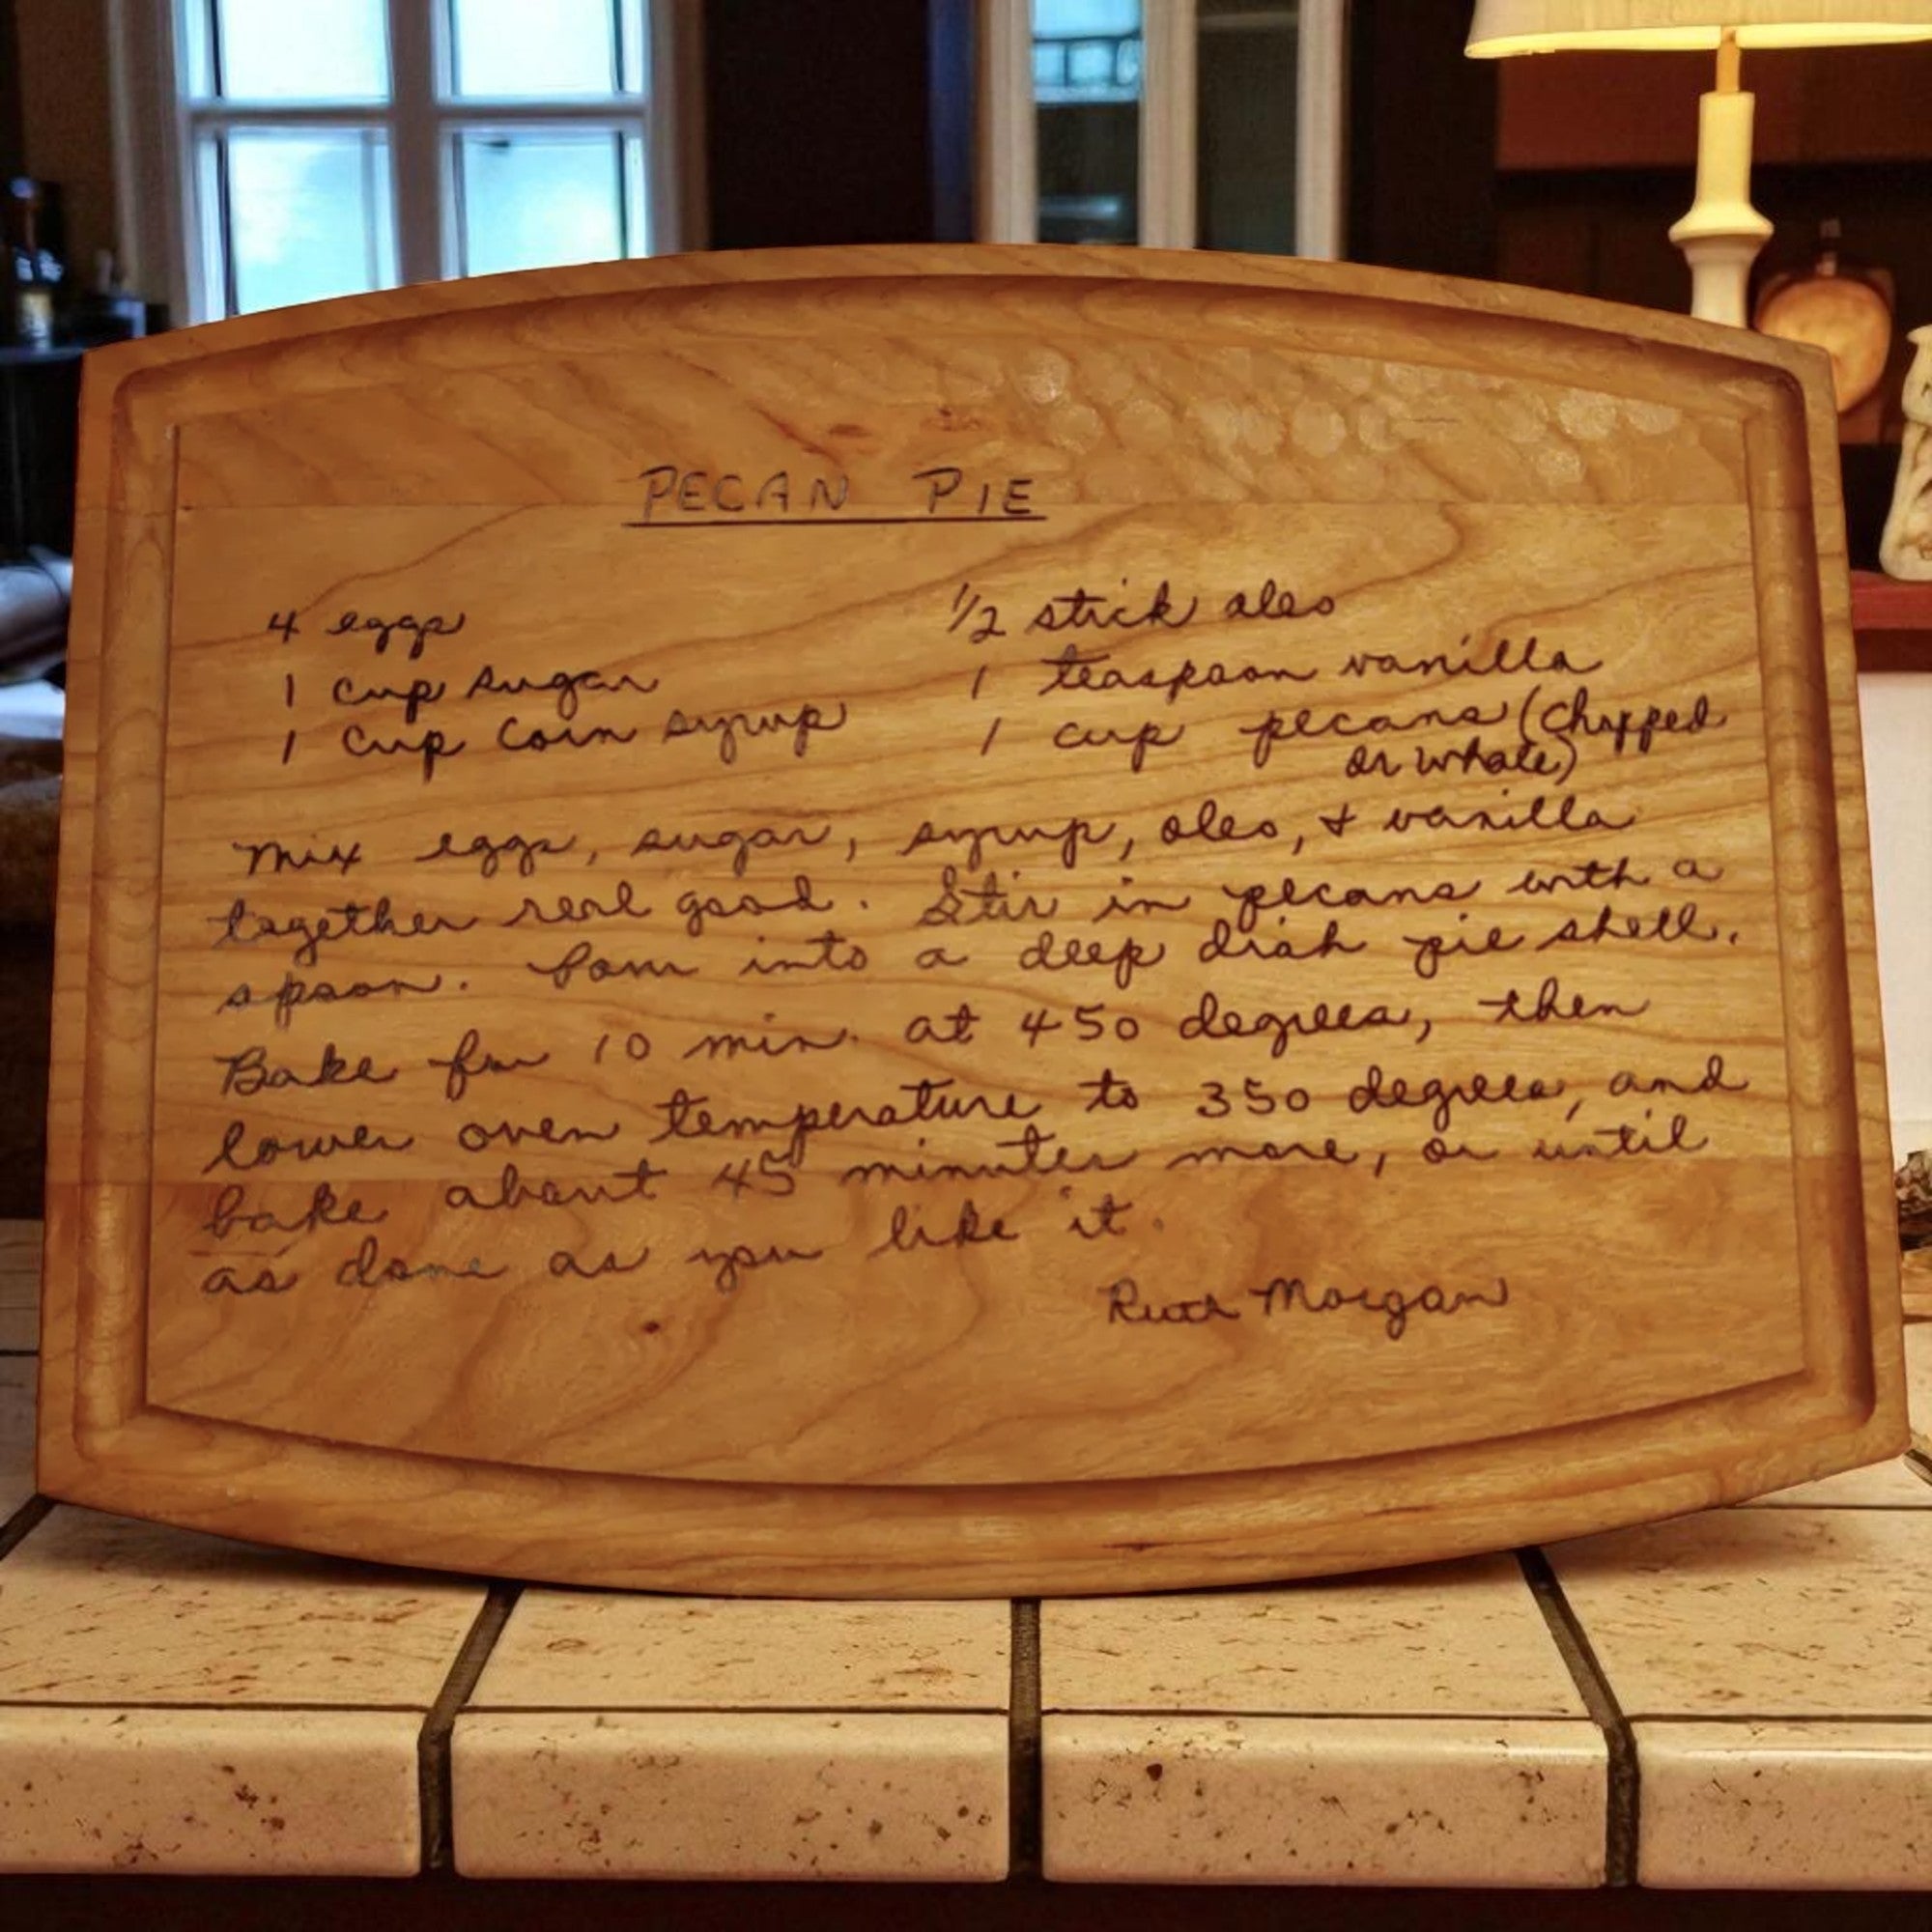 PECAN PIE
4 eggs
1 cup sugar
1 cup Corn syrup
1/2 stick oleo
1 teaspoon vanilla
1 cup pecans (Chopped
or whole)
Mix eggs, sugar, syrup, oleo, & vanilla
together real good. Stir in pecans with a
spoon. Pour into a deep dish pie shell.
Bake for 10 min. at 450 degrees, then
lower oven temperature to 350 degrees, and
bake about 45 minutes more, or until
as done as you like it.
Ruth Morgan